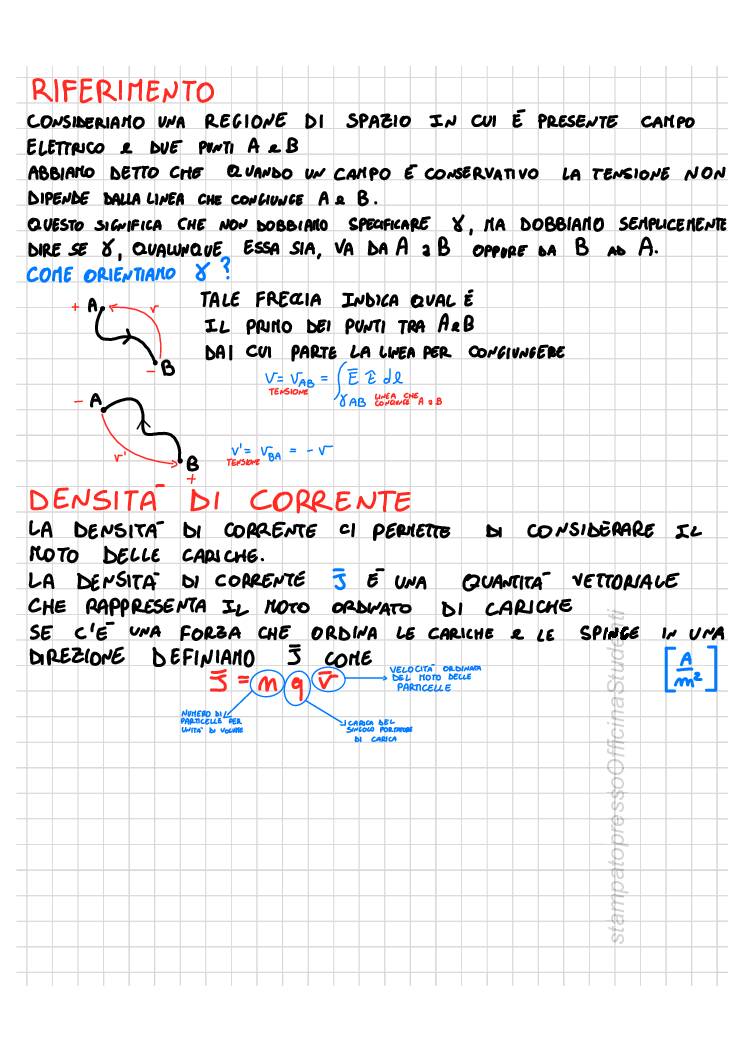 RIFERIMENTO
CONSIDERIAMO UNA REGIONE DI SPAZIO IN CUI È PRESENTE CAMPO
ELETTRICO e DUE PUNTI A e B
ABBIAMO DETTO CHE QUANDO UN CAMPO È CONSERVATIVO LA TENSIONE NON
DIPENDE DALLA LINEA CHE CONGIUNGE A e B.
QUESTO SIGNIFICA CHE NON DOBBIAMO SPECIFICARE γ, MA DOBBIAMO SEMPLICEMENTE
DIRE SE γ, QUALUNQUE ESSA SIA, VA DA A a B OPPURE DA B AD A.
COME ORIENTIAMO γ?
+ A v
- B
TALE FRECCIA INDICA QUAL È
IL PRIMO DEI PUNTI TRA A e B
DAI CUI PARTE LA LINEA PER CONGIUNGERE
V = V_AB = ∫ Ē τ̄ dl
TENSIONE
γ AB LINEA CHE CONGIUNGE A e B
- A
v' B
+
v' = v_BA = - v
TENSIONE
DENSITÀ DI CORRENTE
LA DENSITÀ DI CORRENTE CI PERMETTE DI CONSIDERARE IL
MOTO DELLE CARICHE.
LA DENSITÀ DI CORRENTE J̄ È UNA QUANTITÀ VETTORIALE
CHE RAPPRESENTA IL MOTO ORDINATO DI CARICHE
SE C'È UNA FORZA CHE ORDINA LE CARICHE e LE SPINGE IN UNA
DIREZIONE DEFINIAMO J̄ COME
[A/m²]
J̄ = n q v̄
VELOCITÀ ORDINATA
DEL MOTO DELLE
PARTICELLE
NUMERO DI
PARTICELLE PER
UNITÀ DI VOLUME
CARICA DEL
SINGOLO PORTATORE
DI CARICA
stampatopressoOfficinaStudenti